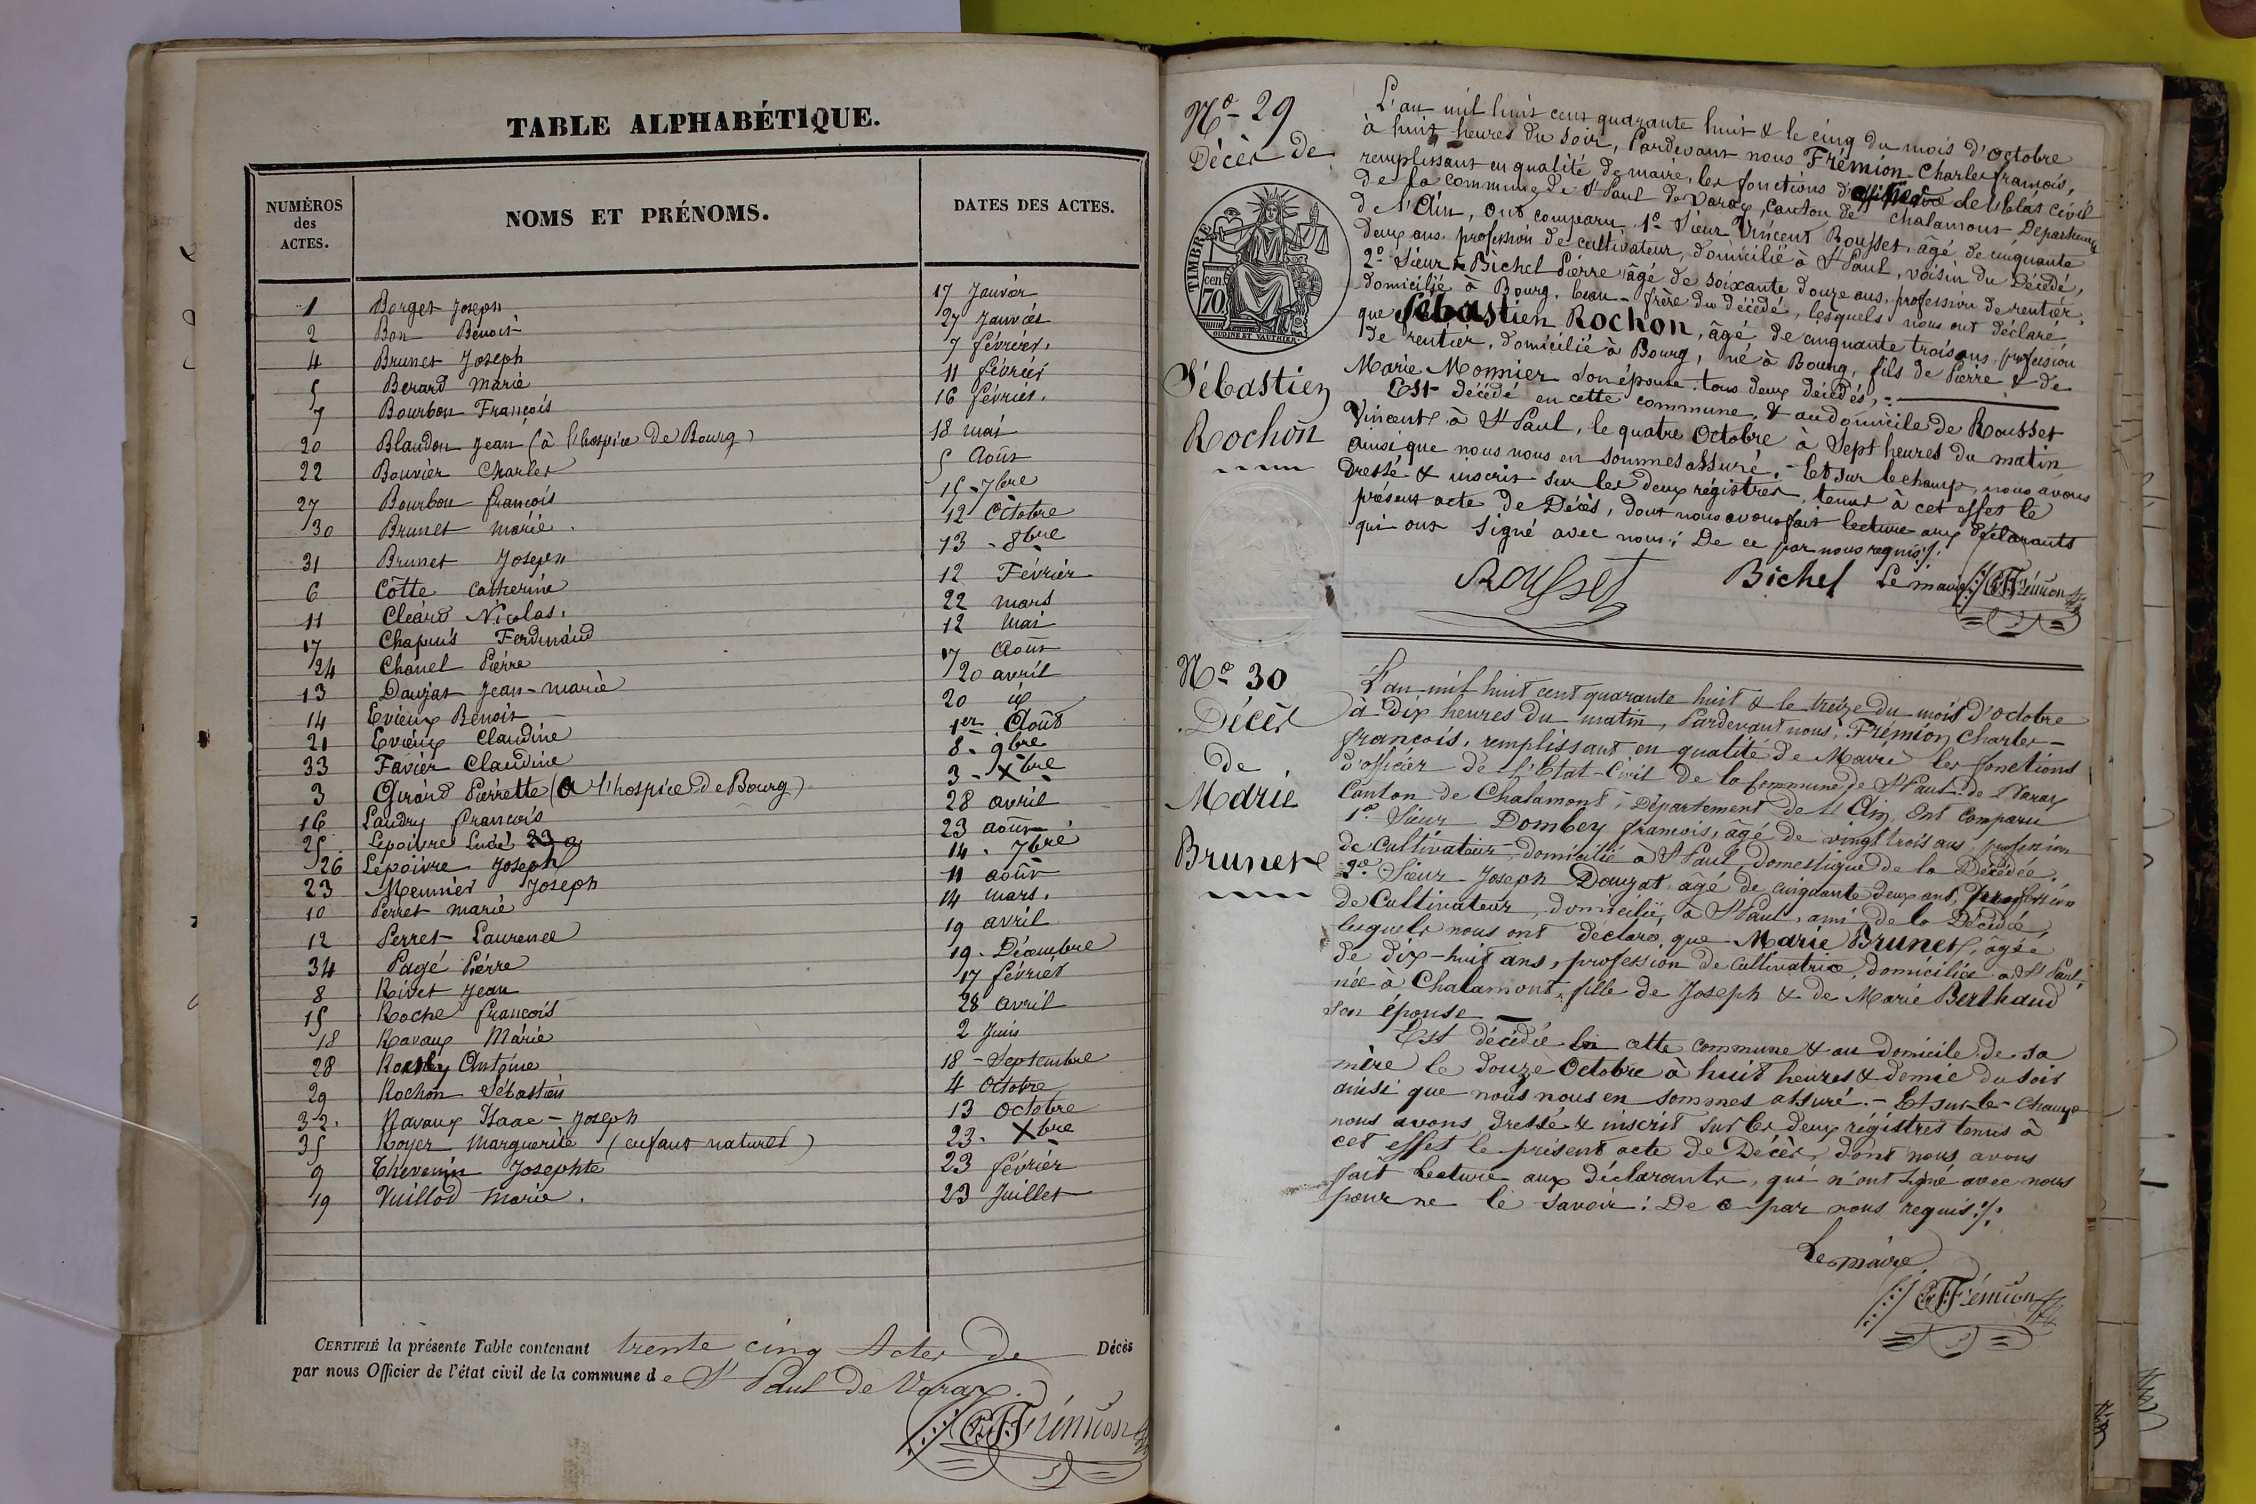 TABLE ALPHABÉTIQUE.
NUMÉROS des ACTES. NOMS ET PRÉNOMS. DATES DES ACTES.
1 Borget Joseph 17 Janvier
2 Bon Benoit 27 Janvier
4 Brunet Joseph 7 février.
5 Berard Marie 11 février
7 Bourbon François 16 février.
20 Blandon Jean (à l'hospice de Bourg) 18 mai
22 Bouvier Charles 5 Août
27 Bourbon françois 15 - 7bre
30 Brunet Marie. 12 Octobre
31 Brunet Joseph 13 - 8bre
6 Côtte Catherine 12 Février
11 Cléard Nicolas. 22 mars
17 Chapuis Ferdinand 12 Mai
24 Chanel Pierre 17 Août
13 Daujat Jean-Marie 20 avril
14 Evieux Benoit 20 id
21 Evieux Claudine 1er Août
33 Favier Claudine 8 - 9bre
3 Girard Pierrette (à l'hospice de Bourg) 3 - Xbre
16 Landry françois 28 avril
25 Lepoivre 23 août
26 Lepoivre Joseph 14 - 7bre
23 Meunier Joseph 11 août
10 Perret Marie 14 mars.
12 Perret Laurence 19 avril
34 Pagé Pierre 19 - Décembre
8 Rivet Jean 17 février
15 Roche françois 28 avril
18 Ravaux Marie 2 Juin
28 Antoine 18 - Septembre
29 Rochon Sébastien 4 Octobre
32. Ravaux Isaac - Joseph 13 Octobre
35 Royer Marguerite (enfant naturel) 23 - Xbre
9 Thevenin Josephte 23 février
19 Vuillod Marie. 23 Juillet
CERTIFIÉ la présente Table contenant trente cinq Actes de Décès
par nous Officier de l'état civil de la commune de St Paul de Varax.
Frémion
Nº 29
Décès de
TIMBRE
70 cen.
OUDINÉ ET VAUTHIER
Sébastien
Rochon
L'an mil huit cent quarante huit & le cinq du mois d'Octobre
à huit heures du soir, Pardevant nous Frémion Charles françois,
remplissant en qualité de maire, les fonctions d'officier de l'Etat civil
de la commune de St Paul de Varax, canton de Chalamont Département
de l'Ain, Ont comparu 1º Sieur Vincent Rousset, âgé de cinquante
deux ans, profession de cultivateur, domicilié à St Paul, voisin du Décédé,
2º Sieur Bichel Pierre âgé de soixante douze ans, profession de rentier,
domicilié à Bourg, beau-frère du décédé, lesquels nous ont déclaré,
que Sébastien Rochon, âgé de cinquante trois ans, profession
de rentier, domicilié à Bourg, né à Bourg, fils de Pierre & de
Marie Monnier son épouse tous deux décédés,
Est décédé en cette commune, & au domicile de Rousset
Vincent, à St Paul, le quatre Octobre à Sept heures du matin
ainsi que nous nous en sommes assuré. - Et sur le champ, nous avons
dressé & inscrit sur les deux régistres, tenus à cet effet le
présent acte de Décès, dont nous avons fait lecture aux déclarants
qui ont signé avec nous; De ce par nous requis./.
Rousset Bichel Le maire Frémion
Nº 30
Décès
de
Marie
Brunet
L'an mil huit cent quarante huit & le treize du mois d'octobre
à Dix heures du matin, Pardevant nous, Frémion Charles-
françois, remplissant en qualité de Maire les fonctions
d'officier de l'Etat-Civil de la Commune de St Paul de Varax
Canton de Chalamont, Département de l'Ain, Ont Comparu
1º Sieur Dombey françois, âgé de vingt trois ans, profession
de Cultivateur, domicilié à St Paul, domestique de la Décédée.
2º Sieur Joseph Daujat, âgé de cinquante deux ans, profession
de Cultivateur, domicilié, à St Paul, ami de la Décédée,
lesquels nous ont déclaré que Marie Brunet, âgée
de dix-huit ans, profession de Cultivatrice, domiciliée à St Paul,
née à Chalamont, fille de Joseph & de Marie Berthaud
son épouse
Est décédée en cette commune & au domicile de sa
mère le douze Octobre à huit heures & demie du soir
ainsi que nous nous en sommes assuré. - Et sur-le-champ
nous avons dressé & inscrit sur les deux régistres tenus à
cet effet le présent acte de Décès, dont nous avons
fait Lecture aux déclarants, qui n'ont signé avec nous
pour ne le savoir: De ce par nous requis./.
Le maire
Frémion